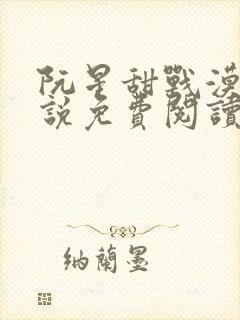 阮星甜戰漠
說免費閱讀
納蘭墨